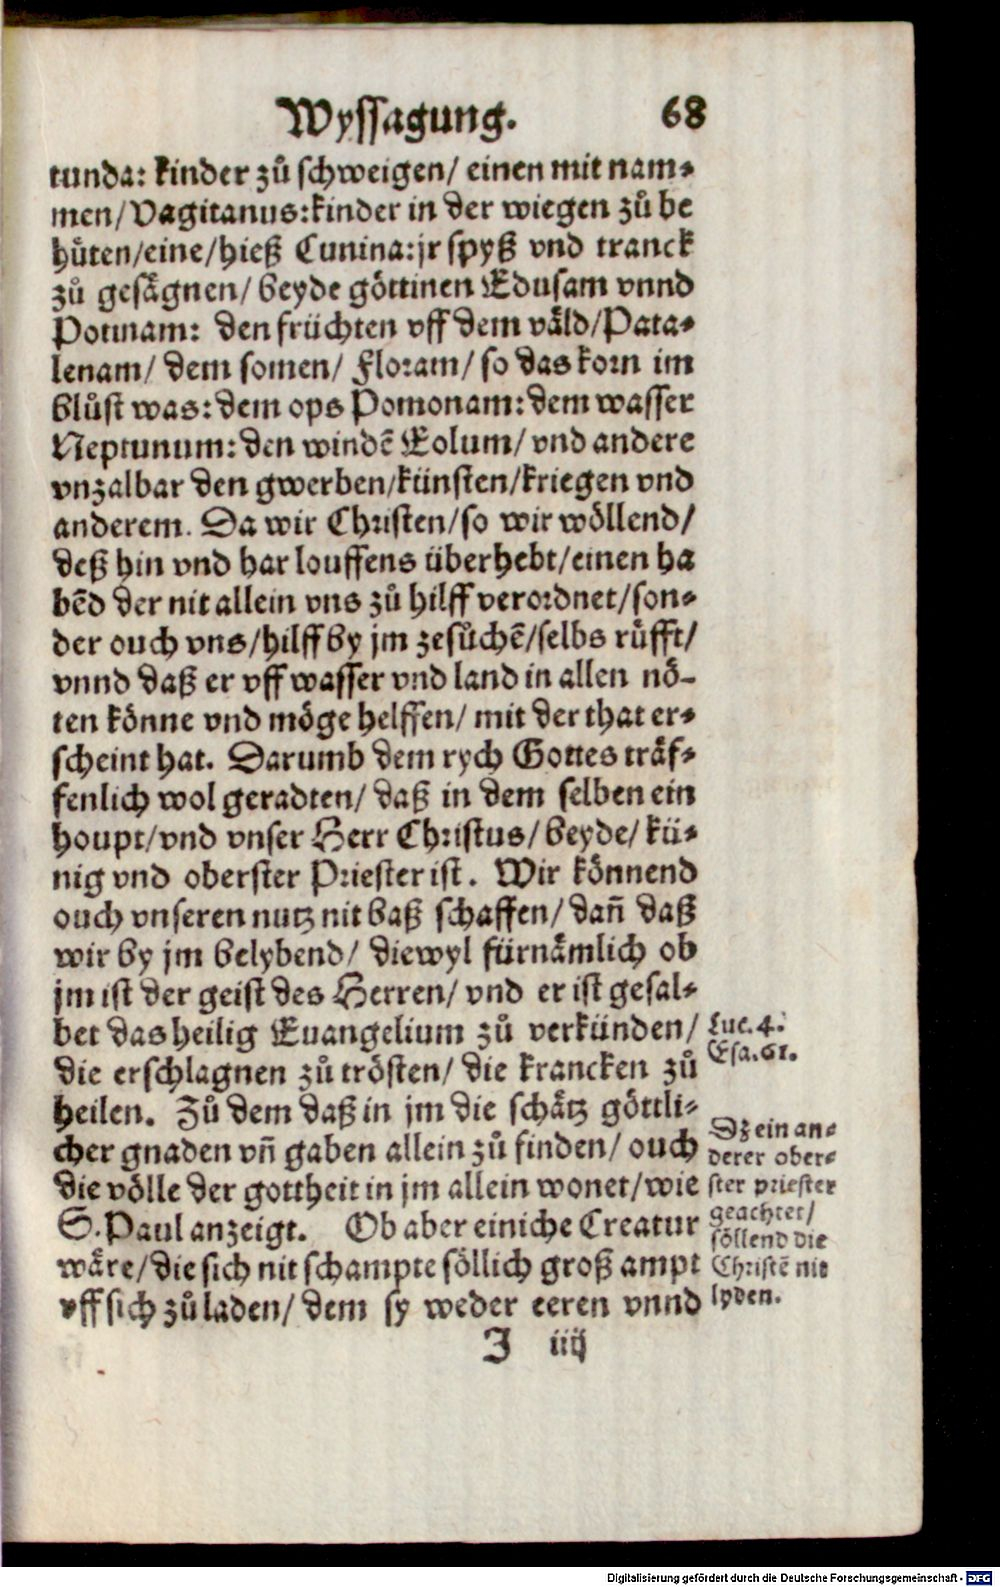 Wyssagung. 68
tunda: kinder zů schweigen/ einen mit nam⸗
men/ Vagitanus: kinder in der wiegen zů be
hůten/ eine/ hieß Cunina: jr spyß vnd tranck
zů gesägnen/ beyde göttinen Edusam vnnd
Potinam: den früchten vff dem väld/ Pata⸗
lenam/ dem somen/ Floram/ so das korn im
blůst was: dem ops Pomonam: dem wasser
Neptunum: den windē Eolum/ vnd andere
vnzalbar den gwerben/ künsten/ kriegen vnd
anderem. Da wir Christen/ so wir wöllend/
deß hin vnd har louffens überhebt/ einen ha
bēd der nit allein vns zů hilff verordnet/ son⸗
der ouch vns/ hilff by jm zesůchē/ selbs růfft/
vnnd daß er vff wasser vnd land in allen nö-
ten könne vnd möge helffen/ mit der that er⸗
scheint hat. Darumb dem rych Gottes träf⸗
fenlich wol geradten/ daß in dem selben ein
houpt/ vnd vnser Herr Christus/ beyde/ kü⸗
nig vnd oberster Priester ist. Wir könnend
ouch vnseren nutz nit baß schaffen/ dañ daß
wir by jm belybend/ diewyl fürnämlich ob
jm ist der geist des Herren/ vnd er ist gesal⸗
bet das heilig Euangelium zů verkünden/
Luc. 4.
Esa. 61.
die erschlagnen zů trösten/ die krancken zů
heilen. Zů dem daß in jm die schätz göttli⸗
cher gnaden vñ gaben allein zů finden/ ouch
die völle der gottheit in jm allein wonet/ wie
S. Paul anzeigt. Ob aber einiche Creatur
wäre/ die sich nit schampte söllich groß ampt
vff sich zů laden/ dem sy weder eeren vnnd
Dz ein an⸗
derer ober⸗
ster priester
geachtet/
söllend die
Christē nit
lyden.
J iiij
Digitalisierung gefördert durch die Deutsche Forschungsgemeinschaft - DFG